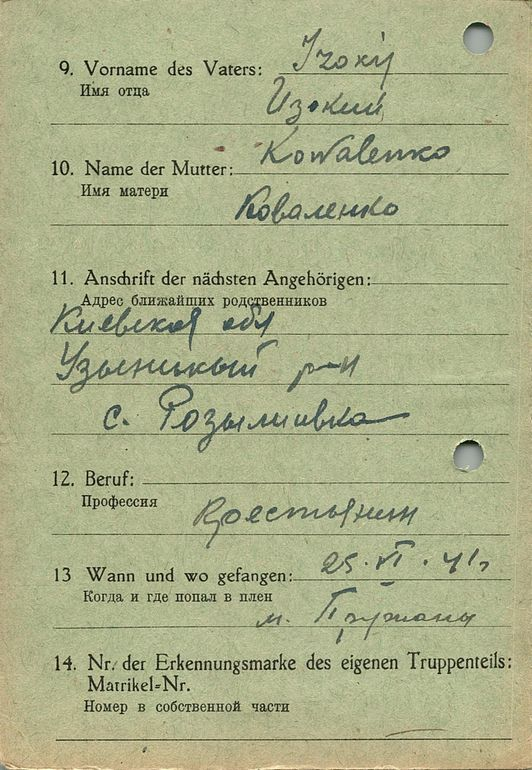 9. Vorname des Vaters: Izokij
Имя отца
Изокий
Kowalenko
10. Name der Mutter:
Имя матери
Коваленко
11. Anschrift der nächsten Angehörigen:
Адрес ближайших родственников
Киевская обл
Узыницкый р-н
с. Розылиивка
12. Beruf:
Профессия
Крестьянин
13 Wann und wo gefangen: 25. VI. 41г
Когда и где попал в плен
м. Пружаны
14. Nr. der Erkennungsmarke des eigenen Truppenteils:
Matrikel-Nr.
Номер в собственной части